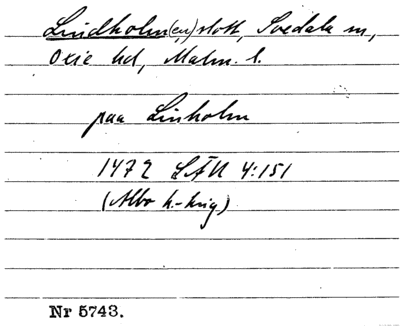 Lindholm(en) slott, Svedala sn,
Oxie hd, Malm. l.
paa Linholm
1472 SÄU 4:151
(Albo h.-krig)
Nr 5743.